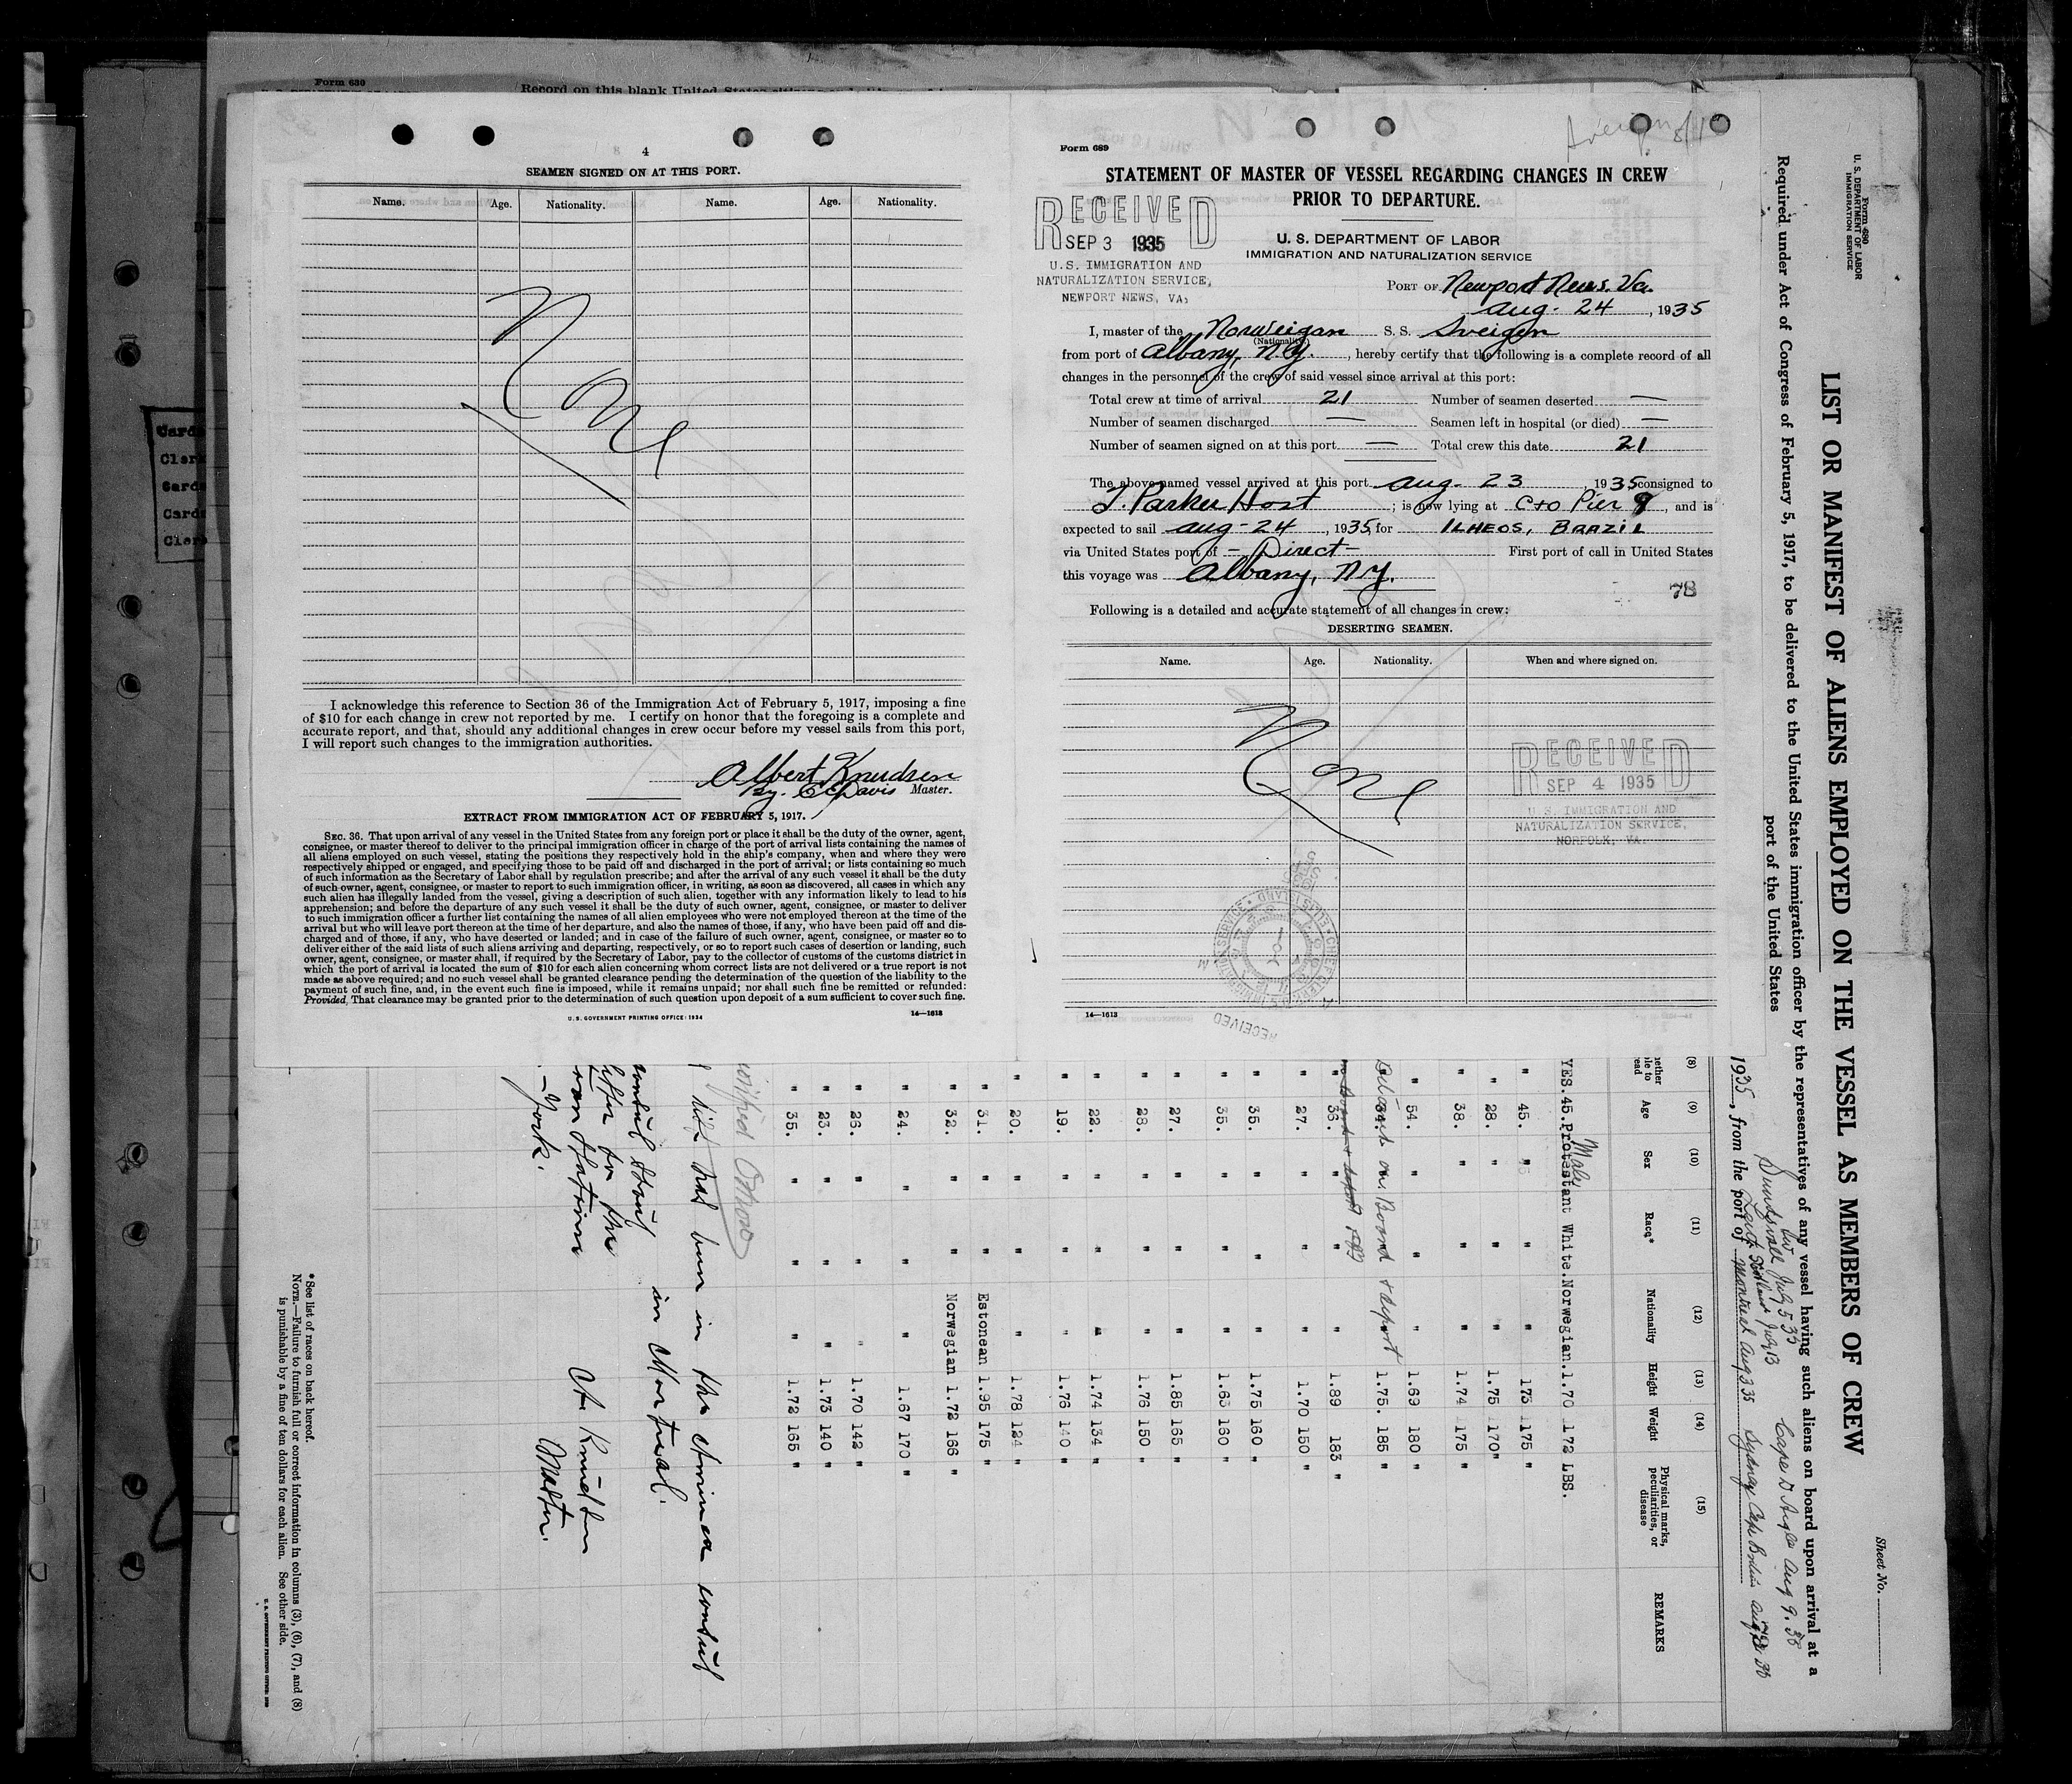 Form 630
Record on this blank United States
4
SEAMEN SIGNED ON AT THIS PORT.
Name. Age. Nationality. Name. Age. Nationality.
None
I acknowledge this reference to Section 36 of the Immigration Act of February 5, 1917, imposing a fine
of $10 for each change in crew not reported by me. I certify on honor that the foregoing is a complete and
accurate report, and that, should any additional changes in crew occur before my vessel sails from this port,
I will report such changes to the immigration authorities.
Albert Knudsen
By. E C Davis Master.
EXTRACT FROM IMMIGRATION ACT OF FEBRUARY 5, 1917.
SEC. 36. That upon arrival of any vessel in the United States from any foreign port or place it shall be the duty of the owner, agent,
consignee, or master thereof to deliver to the principal immigration officer in charge of the port of arrival lists containing the names of
all aliens employed on such vessel, stating the positions they respectively hold in the ship's company, when and where they were
respectively shipped or engaged, and specifying those to be paid off and discharged in the port of arrival; or lists containing so much
of such information as the Secretary of Labor shall by regulation prescribe; and after the arrival of any such vessel it shall be the duty
of such owner, agent, consignee, or master to report to such immigration officer, in writing, as soon as discovered, all cases in which any
such alien has illegally landed from the vessel, giving a description of such alien, together with any information likely to lead to his
apprehension; and before the departure of any such vessel it shall be the duty of such owner, agent, consignee, or master to deliver
to such immigration officer a further list containing the names of all alien employees who were not employed thereon at the time of the
arrival but who will leave port thereon at the time of her departure, and also the names of those, if any, who have been paid off and dis-
charged and of those, if any, who have deserted or landed; and in case of the failure of such owner, agent, consignee, or master so to
deliver either of the said lists of such aliens arriving and departing, respectively, or so to report such cases of desertion or landing, such
owner, agent, consignee, or master shall, if required by the Secretary of Labor, pay to the collector of customs of the customs district in
which the port of arrival is located the sum of $10 for each alien concerning whom correct lists are not delivered or a true report is not
made as above required; and no such vessel shall be granted clearance pending the determination of the question of the liability to the
payment of such fine, and, in the event such fine is imposed, while it remains unpaid; nor shall such fine be remitted or refunded:
Provided, That clearance may be granted prior to the determination of such question upon deposit of a sum sufficient to cover such fine.
U. S. GOVERNMENT PRINTING OFFICE: 1934 14—1613
Form 689
STATEMENT OF MASTER OF VESSEL REGARDING CHANGES IN CREW
PRIOR TO DEPARTURE.
RECEIVED
SEP 3 1935
U.S. IMMIGRATION AND
NATURALIZATION SERVICE,
NEWPORT NEWS, VA.
U. S. DEPARTMENT OF LABOR
IMMIGRATION AND NATURALIZATION SERVICE
PORT OF Newport News. Va.
Aug. 24, 1935
I, master of the Norweigan S. S. Sveigen
(Nationality)
from port of Albany, N.Y., hereby certify that the following is a complete record of all
changes in the personnel of the crew of said vessel since arrival at this port:
Total crew at time of arrival 21 Number of seamen deserted —
Number of seamen discharged — Seamen left in hospital (or died) —
Number of seamen signed on at this port — Total crew this date 21
The above-named vessel arrived at this port Aug. 23, 1935 consigned to
T. Parker Host; is now lying at C+O Pier 9, and is
expected to sail Aug-24, 1935, for ILHEOS, BRAZIL
via United States port of - Direct - First port of call in United States
this voyage was Albany, N.Y.
78
Following is a detailed and accurate statement of all changes in crew:
DESERTING SEAMEN.
Name. Age. Nationality. When and where signed on.
None
RECEIVED
SEP 4 1935
U.S. IMMIGRATION AND
NATURALIZATION SERVICE,
NORFOLK, VA.
RECEIVED
14—1613
Sheet No.
Form 680
U. S. DEPARTMENT OF LABOR
IMMIGRATION SERVICE
LIST OR MANIFEST OF ALIENS EMPLOYED ON THE VESSEL AS MEMBERS OF CREW
Required under Act of Congress of February 5, 1917, to be delivered to the United States immigration officer by the representatives of any vessel having such aliens on board upon arrival at a
port of the United States
Sundsvall July 5 35 Cape D Aug 9. 35
July 13
1935, from the port of Montreal Aug 3 35 Sydney Cape Breton Aug
(8) (9) (10) (11) (12) (13) (14) (15)
Age Sex Race* Nationality Height Weight Physical marks, peculiarities, or disease REMARKS
Male
YES. 45. Protestant White. Norwegian. 1.70 172 LBS.
" 45. " " " 173 175 "
" 28. " " " 1.75 170 "
" 38. " " " 1.74 175 "
" 54. " " " 1.69 180 "
Detained on Board & deport
" 34. " " " 1.75. 185 "
" 36. " " " 1.89 183 "
" 27. " " " 1.70 150 "
" 35. " " " 1.75 160 "
" 35. " " " 1.63 160 "
" 27. " " " 1.85 165 "
" 28. " " " 1.76 150 "
" 22. " " " 1.74 134 "
" 19. " " " 1.76 140 "
" 20. " " " 1.78 124 "
" 31. " " Estonean 1.95 175 "
" 32. " " Norwegian 1.72 166 "
" 24. " " " 1.67 170 "
" 26. " " " 1.70 142 "
" 23. " " " 1.73 140 "
" 35. " " " 1.72 165 "
has been in the American consul
consul in Montreal.
for the
York.
A. Knudsen
Master.
* See list of races on back hereof.
NOTE.—Failure to furnish full or correct information in columns (3), (6), (7), and (8)
is punishable by a fine of ten dollars for each alien. See other side.